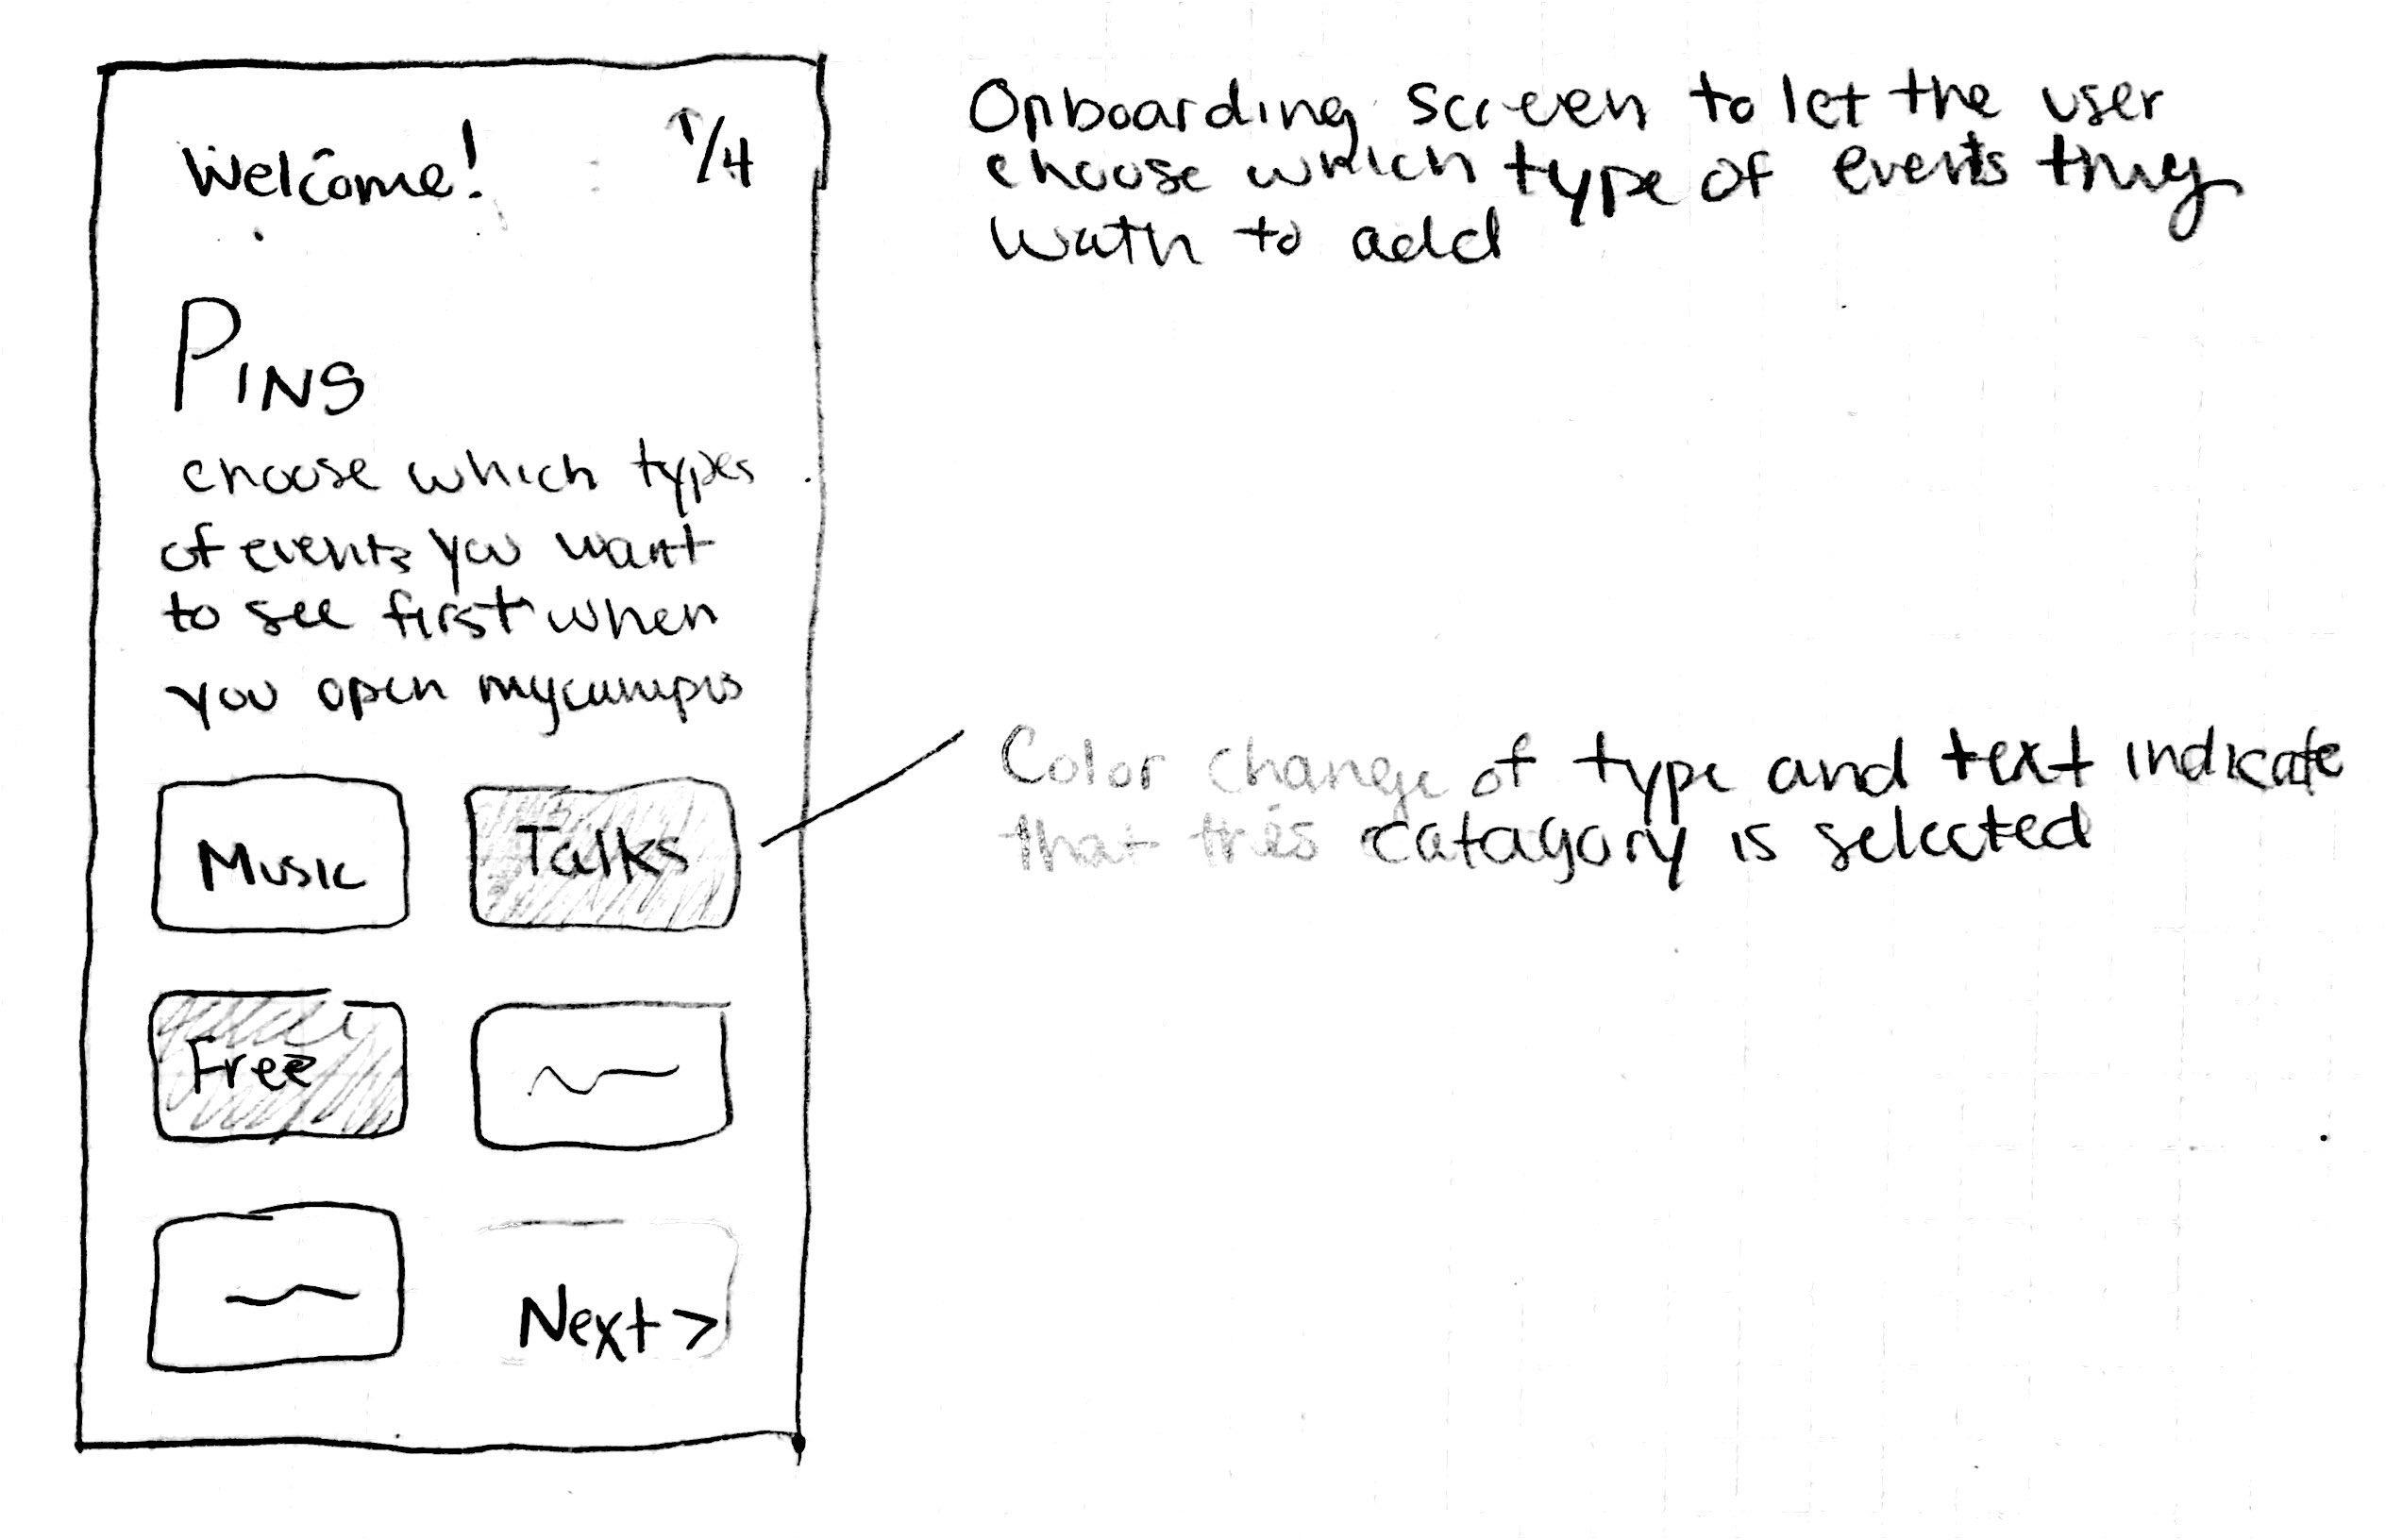 Welcome!
1/4
PINS
choose which types
of events you want
to see first when
you open mycampus
Music
Talks
Free
Next >
Onboarding screen to let the user
choose which type of events they
wath to add
Color change of type and text indicate
that this catagory is selected